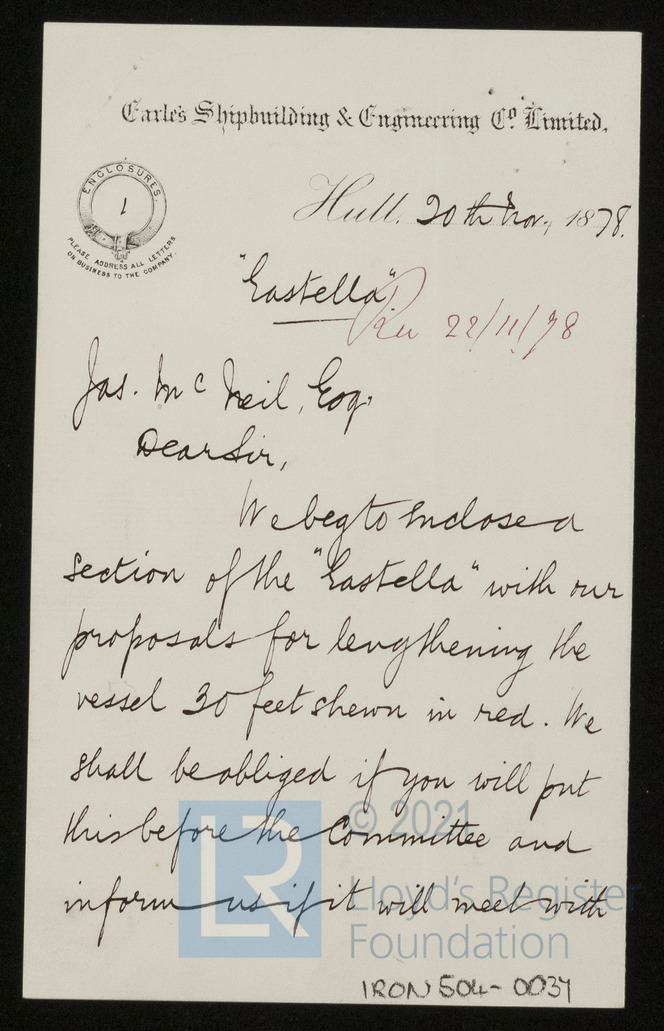 Earle's Shipbuilding & Engineering Co. Limited.
ENCLOSURES.
1
PLEASE ADDRESS ALL LETTERS
ON BUSINESS TO THE COMPANY.
Hull. 20th Nov., 1878.
"Eastella".
Rec 22/11/78
Jas. McNeil, Esq.
Dear Sir,
We beg to enclose a
section of the "Eastella" with our
proposals for lengthening the
vessel 30 feet shewn in red. We
shall be obliged if you will put
this before the Committee and
inform us if it will meet with
LR
© 2021
Lloyd's Register
Foundation
IRON504-0037